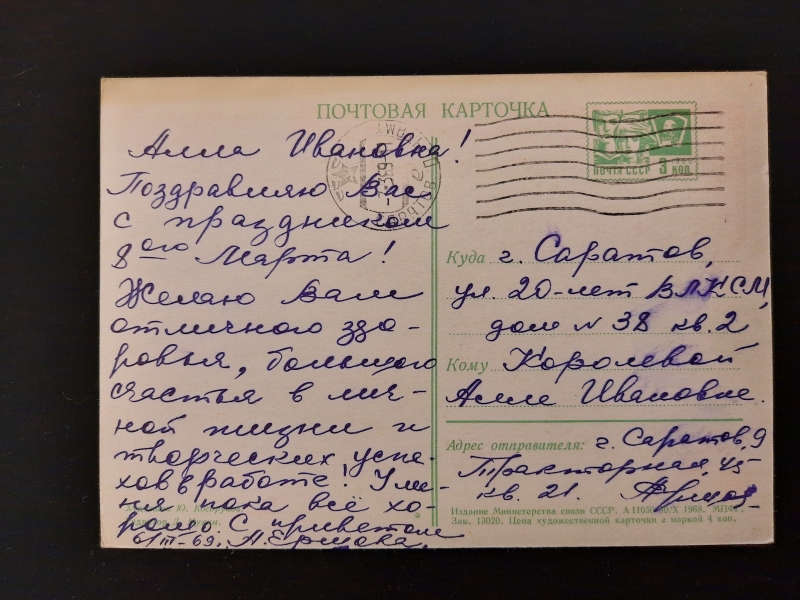 ПОЧТОВАЯ КАРТОЧКА
ПОЧТА СССР 3 коп.
САРАТОВ
Алла Ивановна!
Поздравляю Вас
с праздником
8ого Марта!
Желаю Вам
отличного здо-
ровья, большого
счастья в лич-
ной жизни и
творческих успе-
хов в работе! У ме-
ня пока всё хо-
рошо. С приветом
6/III-69г.
Куда г. Саратов,
ул. 20-лет ВЛКСМ,
дом N 38 кв. 2
Кому Королевой
Алле Ивановне.
Адрес отправителя: г. Саратов, 9
Тракторная, 45
кв. 21.
Издание Министерства связи СССР. 1968. МПФГ.
Зак. 13020. Цена художественной карточки с маркой 4 коп.